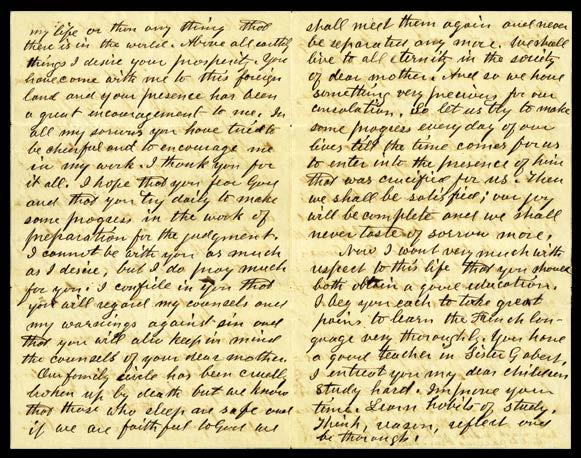 my life or than any thing that
there is in the world. Above all earthly
things I desire your prosperity. You
have come with me to this foreign
land and your presence has been
a great encouragement to me. In
all my sorrows you have tried to
be cheerful and to encourage me
in my work. I thank you for
it all. I hope that you fear God
and that you try daily to make
some progress in the work of
preparation for the judgment.
I cannot be with you as much
as I desire, but I do pray much
for you. I confide in you that
you will regard my counsels and
my warnings against sin and
that you will also keep in mind
the counsels of your dear mother.
Our family circle has been cruelly
broken up by death but we know
that those who sleep are safe and
if we are faithful to God we
shall meet them again and never
be separated any more. We shall
live to all eternity in the society
of dear mother. And so we have
something very precious for our
consolation. So let us try to make
some progress every day of our
lives till the time comes for us
to enter into the presence of him
that was crucified for us. Then
we shall be satisfied; our joy
will be complete and we shall
never taste of sorrow more.
Now I want very much with
respect to this life that you should
both obtain a good education.
I beg you each to take great
pains to learn the French lan-
guage very thoroughly. You have
a good teacher in Sister Gabert.
I entreat you my dear children
study hard. Improve your
time. Learn habits of study.
Think, reason, reflect and
be thorough.